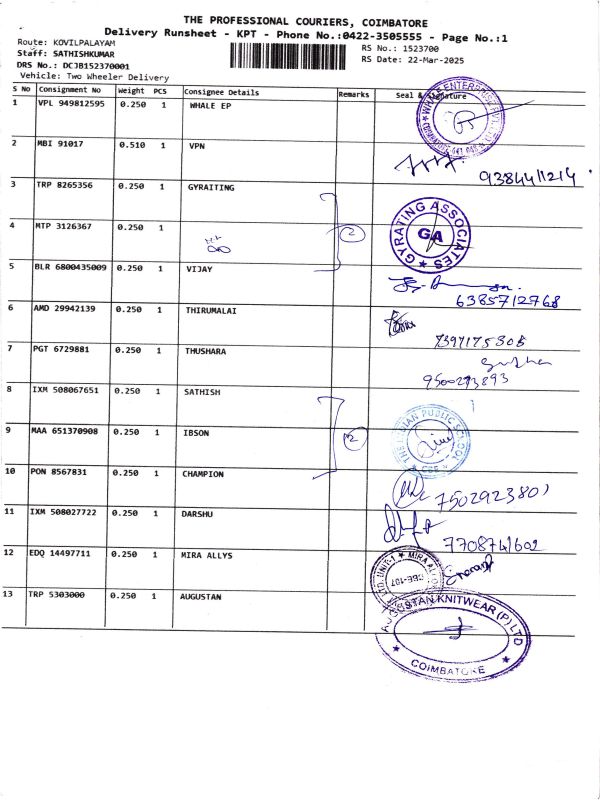 THE PROFESSIONAL COURIERS, COIMBATORE
Delivery Runsheet - KPT - Phone No.:0422-3505555 - Page No.:1
Route: KOVILPALAYAM
RS No.: 1523700
Staff: SATHISHKUMAR
RS Date: 22-Mar-2025
DRS No.: DCJB152370001
Vehicle: Two Wheeler Delivery
S No Consignment No Weight PCS Consignee Details Remarks Seal & Signature
1 VPL 949812595 0.250 1 WHALE EP
WHALE ENTERPRISE
2 MBI 91017 0.510 1 VPN
9384411214
3 TRP 8265356 0.250 1 GYRAITING
2
GYRATING ASSOCIATES
GA
4 MTP 3126367 0.250 1
5 BLR 6800435009 0.250 1 VIJAY
6385712768
6 AMD 29942139 0.250 1 THIRUMALAI
7 PGT 6729881 0.250 1 THUSHARA
8 IXM 508067651 0.250 1 SATHISH
2
INDIAN PUBLIC SCHOOL
9 MAA 651370908 0.250 1 IBSON
10 PON 8567831 0.250 1 CHAMPION
11 IXM 508027722 0.250 1 DARSHU
7708741602
12 EDQ 14497711 0.250 1 MIRA ALLYS
CBE-107
13 TRP 5303000 0.250 1 AUGUSTAN
AUGUSTAN KNITWEAR (P) LTD
COIMBATORE